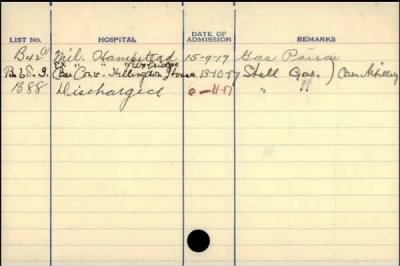 LIST No. HOSPITAL DATE OF ADMISSION REMARKS
B42 Mil. Hampstead 15-9-17 Gas Poison
Uxbridge
Can "Conv" Hillingdon House 13-10-17 Shell Gas.) Can Artillery
B88 Discharged 6-11-17 " "